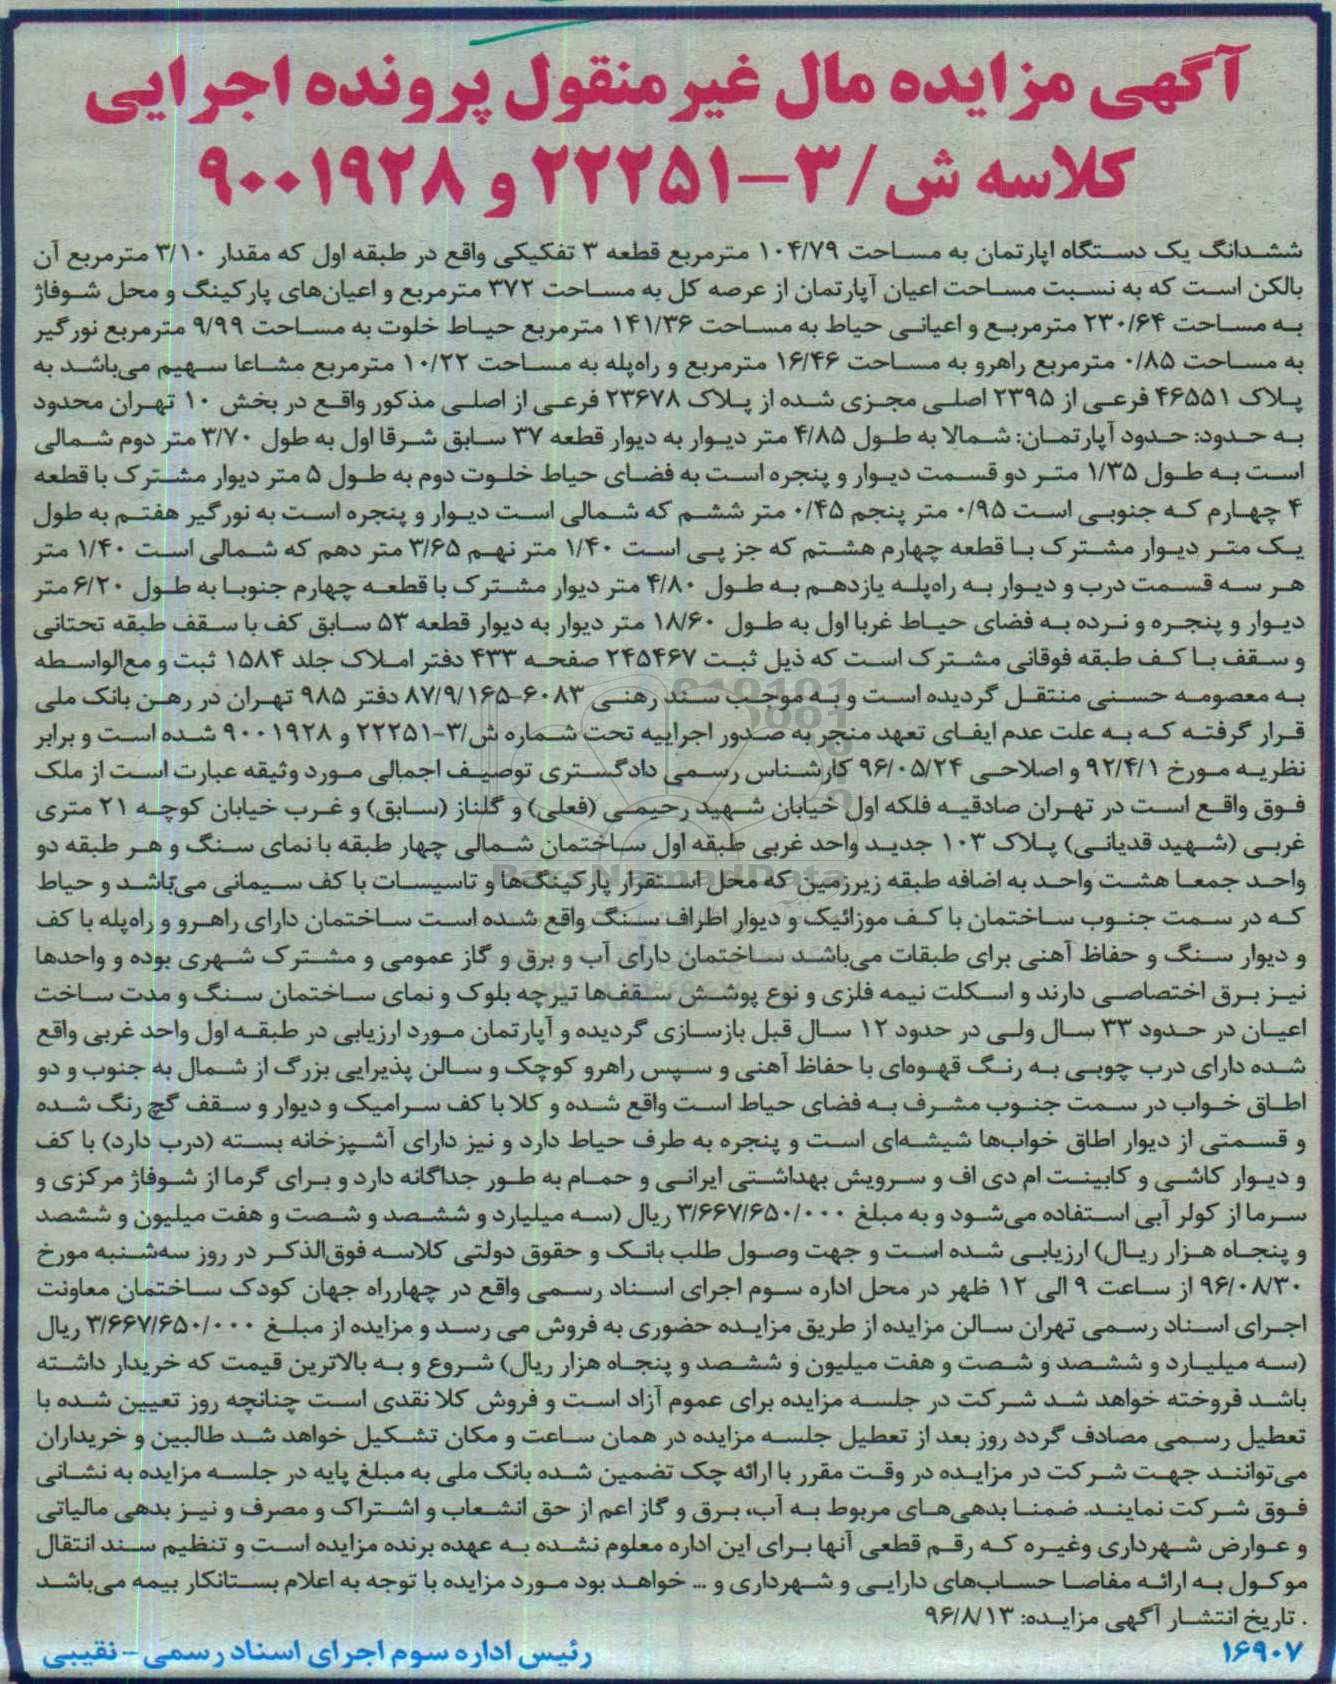 آگهی مزایده مال غیر منقول پرونده اجرایی
کلاسه ش /۳-۲۲۲۵۱ و ۹۰۰۱۹۲۸
ششدانگ یک دستگاه اپارتمان به مساحت ۱۰۴/۷۹ مترمربع قطعه ۳ تفکیکی واقع در طبقه اول که مقدار ۳/۱۰ مترمربع آن
بالکن است که به نسبت مساحت اعیان آپارتمان از عرصه کل به مساحت ۳۷۲ مترمربع و اعیان‌های پارکینگ و محل شوفاژ
به مساحت ۲۳۰/۶۴ مترمربع و اعیانی حیاط به مساحت ۱۴۱/۳۶ مترمربع حیاط خلوت به مساحت ۹/۹۹ مترمربع نورگیر
به مساحت ۰/۸۵ مترمربع راهرو به مساحت ۱۶/۴۶ مترمربع و راه‌پله به مساحت ۱۰/۲۲ مترمربع مشاعا سهیم می‌باشد به
پلاک ۴۶۵۵۱ فرعی از ۲۳۹۵ اصلی مجزی شده از پلاک ۲۳۶۷۸ فرعی از اصلی مذکور واقع در بخش ۱۰ تهران محدود
به حدود: حدود آپارتمان: شمالا به طول ۴/۸۵ متر دیوار به دیوار قطعه ۳۷ سابق شرقا اول به طول ۳/۷۰ متر دوم شمالی
است به طول ۱/۳۵ متر دو قسمت دیوار و پنجره است به فضای حیاط خلوت دوم به طول ۵ متر دیوار مشترک با قطعه
۴ چهارم که جنوبی است ۰/۹۵ متر پنجم ۰/۴۵ متر ششم که شمالی است دیوار و پنجره است به نورگیر هفتم به طول
یک متر دیوار مشترک با قطعه چهارم هشتم که جز پی است ۱/۴۰ متر نهم ۳/۶۵ متر دهم که شمالی است ۱/۴۰ متر
هر سه قسمت درب و دیوار به راه‌پله یازدهم به طول ۴/۸۰ متر دیوار مشترک با قطعه چهارم جنوبا به طول ۶/۲۰ متر
دیوار و پنجره و نرده به فضای حیاط غربا اول به طول ۱۸/۶۰ متر دیوار به دیوار قطعه ۵۳ سابق کف با سقف طبقه تحتانی
و سقف با کف طبقه فوقانی مشترک است که ذیل ثبت ۲۴۵۴۶۷ صفحه ۴۳۳ دفتر املاک جلد ۱۵۸۴ ثبت و مع‌الواسطه
به معصومه حسنی منتقل گردیده است و به موجب سند رهنی ۶۰۸۳-۸۷/۹/۱۶۵ دفتر ۹۸۵ تهران در رهن بانک ملی
قرار گرفته که به علت عدم ایفای تعهد منجر به صدور اجراییه تحت شماره ش/۳-۲۲۲۵۱ و ۹۰۰۱۹۲۸ شده است و برابر
نظریه مورخ ۹۲/۴/۱ و اصلاحی ۹۶/۰۵/۲۴ کارشناس رسمی دادگستری توصیف اجمالی مورد وثیقه عبارت است از ملک
فوق واقع است در تهران صادقیه فلکه اول خیابان شهید رحیمی (فعلی) و گلناز (سابق) و غرب خیابان کوچه ۲۱ متری
غربی (شهید قدیانی) پلاک ۱۰۳ جدید واحد غربی طبقه اول ساختمان شمالی چهار طبقه با نمای سنگ و هر طبقه دو
واحد جمعا هشت واحد به اضافه طبقه زیرزمین که محل استقرار پارکینگ‌ها و تاسیسات با کف سیمانی می‌باشد و حیاط
که در سمت جنوب ساختمان با کف موزائیک و دیوار اطراف سنگ واقع شده است ساختمان دارای راهرو و راه‌پله با کف
و دیوار سنگ و حفاظ آهنی برای طبقات می‌باشد ساختمان دارای آب و برق و گاز عمومی و مشترک شهری بوده و واحدها
نیز برق اختصاصی دارند و اسکلت نیمه فلزی و نوع پوشش سقف‌ها تیرچه بلوک و نمای ساختمان سنگ و مدت ساخت
اعیان در حدود ۳۳ سال ولی در حدود ۱۲ سال قبل بازسازی گردیده و آپارتمان مورد ارزیابی در طبقه اول واحد غربی واقع
شده دارای درب چوبی به رنگ قهوه‌ای با حفاظ آهنی و سپس راهرو کوچک و سالن پذیرایی بزرگ از شمال به جنوب و دو
اطاق خواب در سمت جنوب مشرف به فضای حیاط است واقع شده و کلا با کف سرامیک و دیوار و سقف گچ رنگ شده
و قسمتی از دیوار اطاق خواب‌ها شیشه‌ای است و پنجره به طرف حیاط دارد و نیز دارای آشپزخانه بسته (درب دارد) با کف
و دیوار کاشی و کابینت ام دی اف و سرویش بهداشتی ایرانی و حمام به طور جداگانه دارد و برای گرما از شوفاژ مرکزی و
سرما از کولر آبی استفاده می‌شود و به مبلغ ۳/۶۶۷/۶۵۰/۰۰۰ ریال (سه میلیارد و ششصد و شصت و هفت میلیون و ششصد
و پنجاه هزار ریال) ارزیابی شده است و جهت وصول طلب بانک و حقوق دولتی کلاسه فوق‌الذکر در روز سه‌شنبه مورخ
۹۶/۰۸/۳۰ از ساعت ۹ الی ۱۲ ظهر در محل اداره سوم اجرای اسناد رسمی واقع در چهارراه جهان کودک ساختمان معاونت
اجرای اسناد رسمی تهران سالن مزایده از طریق مزایده حضوری به فروش می رسد و مزایده از مبلغ ۳/۶۶۷/۶۵۰/۰۰۰ ریال
(سه میلیارد و ششصد و شصت و هفت میلیون و ششصد و پنجاه هزار ریال) شروع و به بالاترین قیمت که خریدار داشته
باشد فروخته خواهد شد شرکت در جلسه مزایده برای عموم آزاد است و فروش کلا نقدی است چنانچه روز تعیین شده با
تعطیل رسمی مصادف گردد روز بعد از تعطیل جلسه مزایده در همان ساعت و مکان تشکیل خواهد شد طالبین و خریداران
می‌توانند جهت شرکت در مزایده در وقت مقرر با ارائه چک تضمین شده بانک ملی به مبلغ پایه در جلسه مزایده به نشانی
فوق شرکت نمایند. ضمنا بدهی‌های مربوط به آب، برق و گاز اعم از حق انشعاب و اشتراک و مصرف و نیز بدهی مالیاتی
و عوارض شهرداری وغیره که رقم قطعی آنها برای این اداره معلوم نشده به عهده برنده مزایده است و تنظیم سند انتقال
موکول به ارائه مفاصا حساب‌های دارایی و شهرداری و ... خواهد بود مورد مزایده با توجه به اعلام بستانکار بیمه می‌باشد
. تاریخ انتشار آگهی مزایده: ۹۶/۸/۱۳
۱۶۹۰۷ رئیس اداره سوم اجرای اسناد رسمی - نقیبی